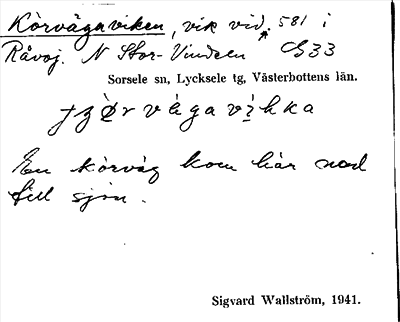 Körvägaviken, vik vid * 581 i
Råvoj. N Stor-Vindeln G33
Sorsele sn, Lycksele tg, Västerbottens län.
En körväg kom här ned
till sjön.
Sigvard Wallström, 1941.